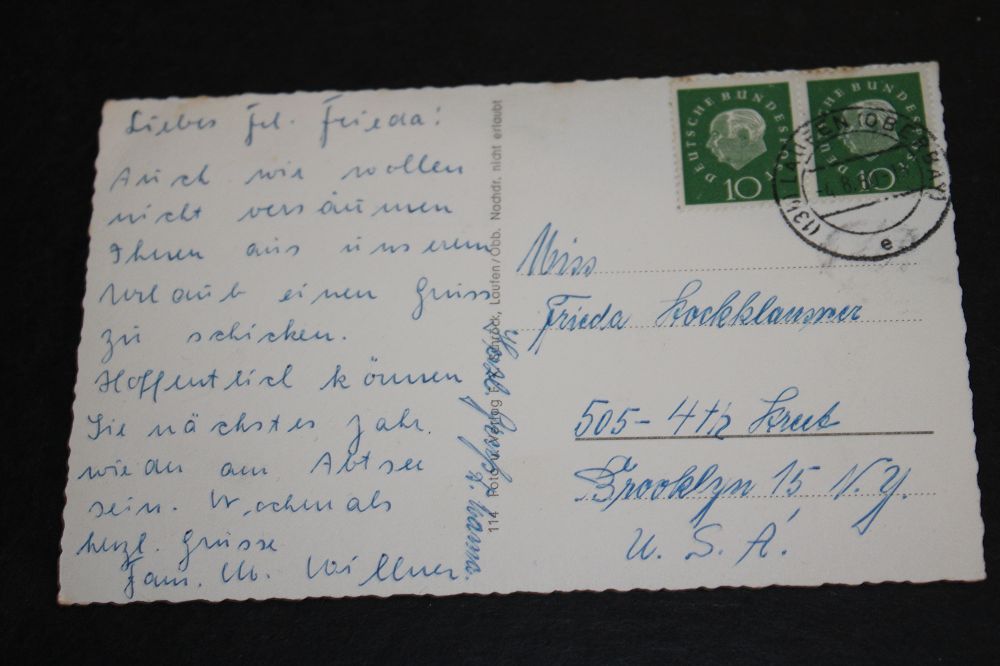 Liebes Frl. Frieda!
Auch wir wollen
nicht versäumen
Ihnen aus unserem
Urlaub einen Gruss
zu schicken.
Hoffentlich können
Sie nächstes Jahr.
wieder am Abtsee
sein. Nochmals
herzl. Grüsse
Fam. M. Willner
114 Foto u. Verlag Schröck, Laufen/Obb. Nachdr. nicht erlaubt
DEUTSCHE BUNDESPOST
10
DEUTSCHE BUNDESPOST
10
LAUFEN (OBERBAY)
e
Miss
Frieda Lockklausner
505-4th Street
Brooklyn 15 N.Y.
U.S.A.